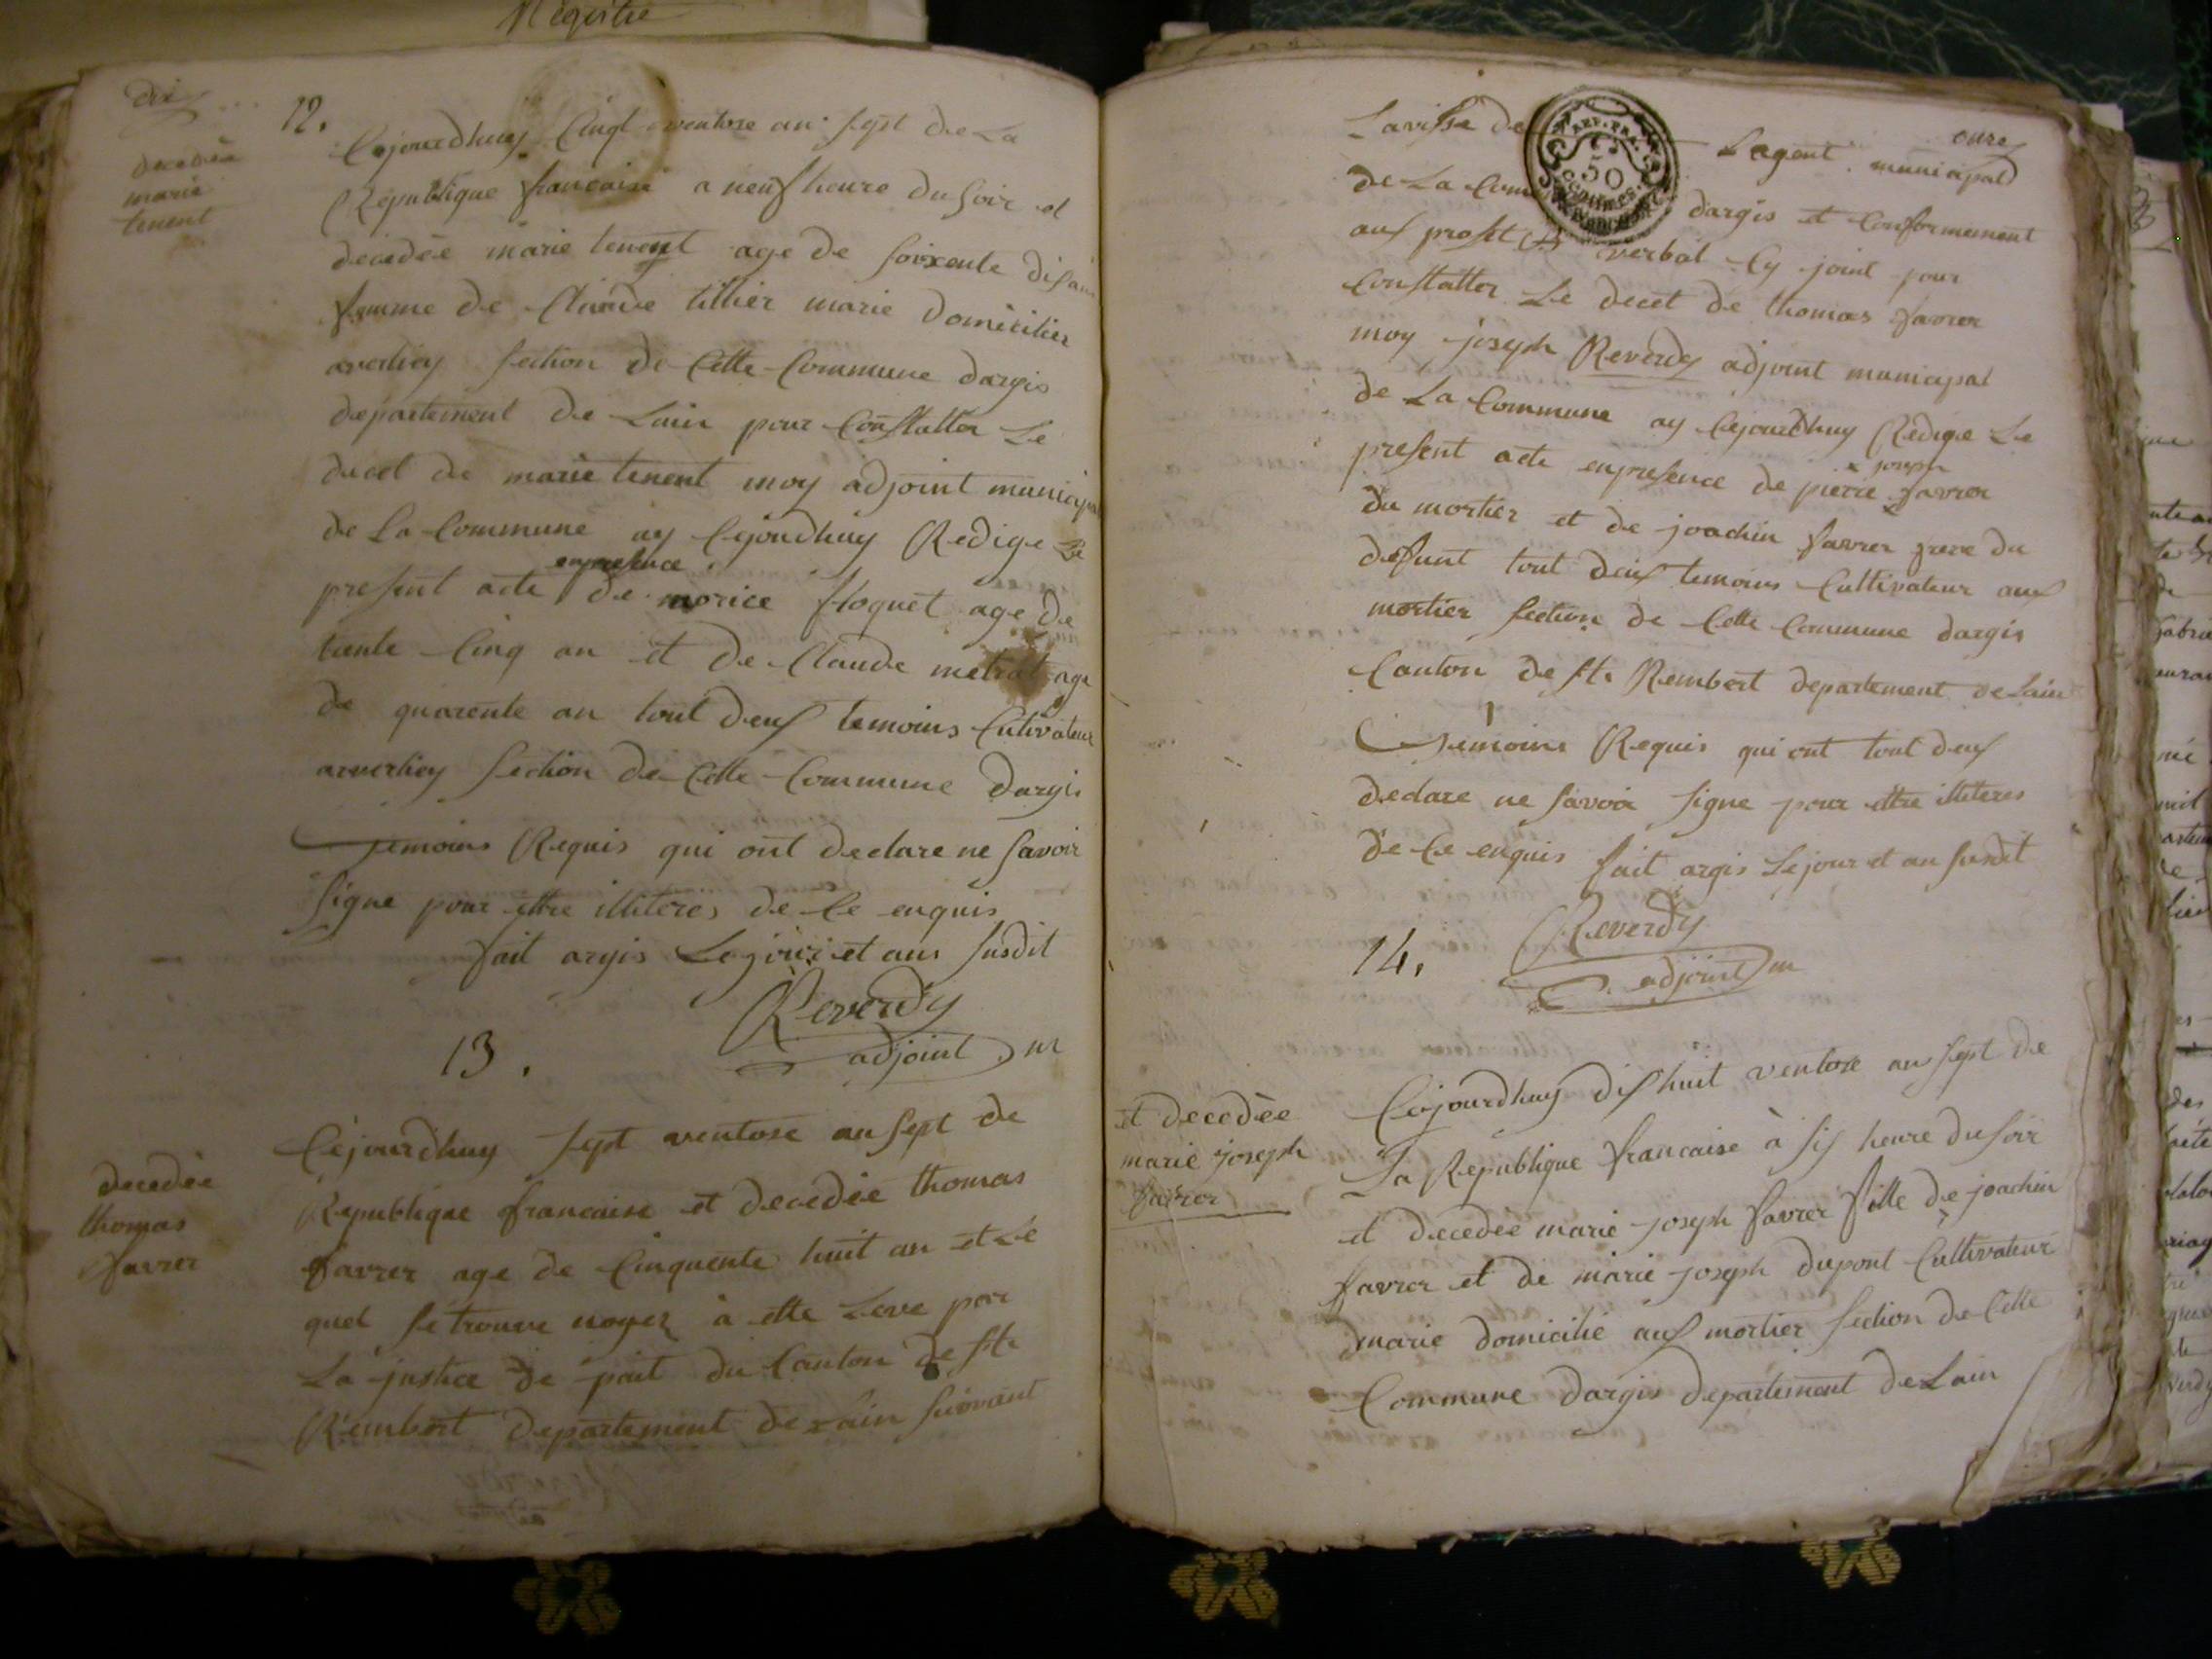 Registre
dix
12.
decedèe
marie
tenent
Cejourdhuy Cinqt ventose an sept de La
Republique francaise a neuf heure du soir et
decedèe marie tenent age de soixente dis an
femme de Claude tillier marie Domicilier
averliey section de Cette Commune dargis
departement de Lain pour Constatter Le
decet de marie tenent moy adjoint municipal
de La Commune ay Cejourdhuy Redige Le
enpresence
present acte de morice floquet age de
trente Cinq an et de Claude metral age
de quarente an tout deux temoins Cultivateur
arverliey section de Cette Commune Dargis
Temoins Requis qui ont declare ne savoir
signe pour ettre illiteres de Ce enquis
fait argis Le jour et an susdit
Reverdy
adjoint m
13.
decedèe
thomas
favrer
Cejourdhuy sept ventose an sept de
Republique francaise et decedèe thomas
favrer age de Cinquente huit an et Le
quel se trouve noyez à ette Leve par
La justice de pait du Canton de st.
Rembert departement de Lain suivant
onze
Lavisse de Lagent municipal
REP. FRA.
50
CENTIMES
de La Com dargis et Conformement
aux profet verbal Cy joint pour
Constatter Le decet de thomas favrer
moy joseph Reverdy adjoint municipal
de La Commune ay Cejourdhuy Redige Le
joseph
present acte enpresence de pierre favrer
du mortier et de joachin favrer frere du
defunt tout deux temoins Cultivateur aux
mortier section de Cette Commune dargis
Canton de st. Rembert departement de Lain
Temoins Requis qui ont tout deux
declare ne savoir signe pour ettre illiteres
de Ce enquis fait argis Le jour et an susdit
Reverdy
adjoint m
14.
et decedèe
marie joseph
favrer
Cejourdhuy dishuit ventose an sept de
La Republique francaise à sis heure du soir
et decedèe marie joseph favrer fille de joachin
favrer et de marie joseph dupont Cultivateur
marie domicilie aux mortier section de Cette
Commune dargis departement de Lain